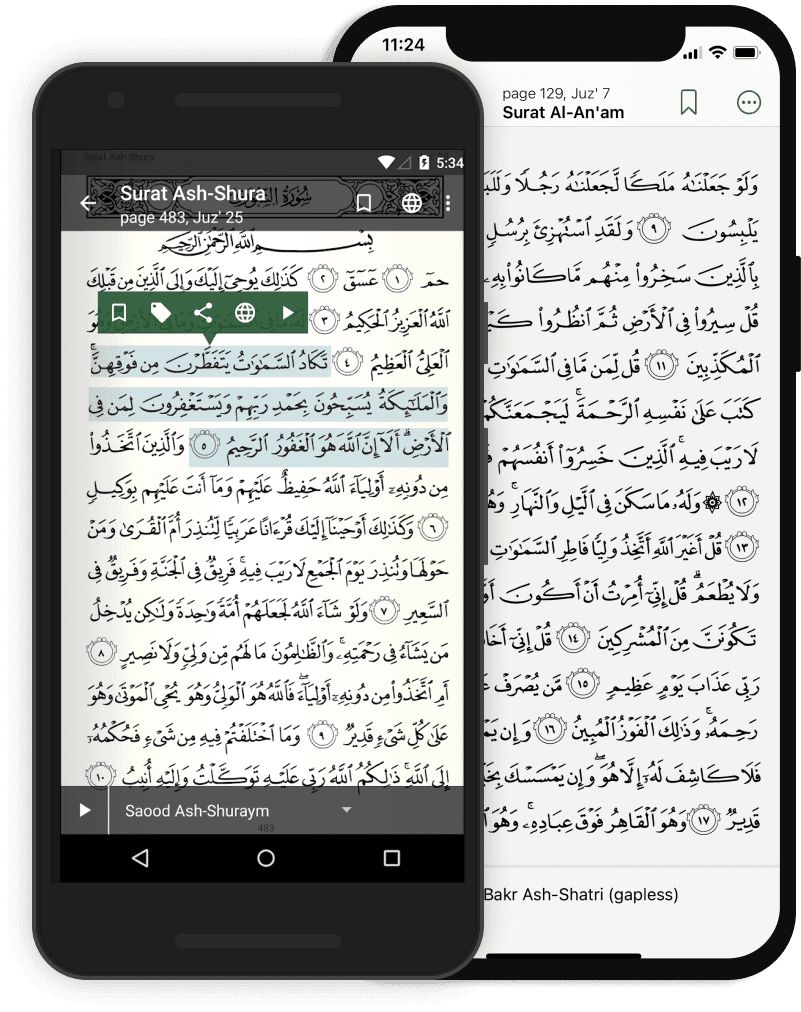 5:34
Surat Ash-Shura
page 483, Juz' 25
بِسْمِ ٱللَّهِ ٱلرَّحْمَٰنِ ٱلرَّحِيمِ
حمٓ ١ عٓسٓقٓ ٢ كَذَٰلِكَ يُوحِىٓ إِلَيْكَ وَإِلَى ٱلَّذِينَ مِن قَبْلِكَ
ٱللَّهُ ٱلْعَزِيزُ ٱلْحَكِيمُ ٣ لَهُۥ مَا فِى ٱلسَّمَٰوَٰتِ وَمَا فِى ٱلْأَرْضِ وَهُوَ
ٱلْعَلِىُّ ٱلْعَظِيمُ ٤ تَكَادُ ٱلسَّمَٰوَٰتُ يَتَفَطَّرْنَ مِن فَوْقِهِنَّ ۚ
وَٱلْمَلَٰٓئِكَةُ يُسَبِّحُونَ بِحَمْدِ رَبِّهِمْ وَيَسْتَغْفِرُونَ لِمَن فِى
ٱلْأَرْضِ ۗ أَلَآ إِنَّ ٱللَّهَ هُوَ ٱلْغَفُورُ ٱلرَّحِيمُ ٥ وَٱلَّذِينَ ٱتَّخَذُوا۟
مِن دُونِهِۦٓ أَوْلِيَآءَ ٱللَّهُ حَفِيظٌ عَلَيْهِمْ وَمَآ أَنتَ عَلَيْهِم بِوَكِيلٍ
٦ وَكَذَٰلِكَ أَوْحَيْنَآ إِلَيْكَ قُرْءَانًا عَرَبِيًّا لِّتُنذِرَ أُمَّ ٱلْقُرَىٰ وَمَنْ
حَوْلَهَا وَتُنذِرَ يَوْمَ ٱلْجَمْعِ لَا رَيْبَ فِيهِ ۚ فَرِيقٌ فِى ٱلْجَنَّةِ وَفَرِيقٌ فِى
ٱلسَّعِيرِ ٧ وَلَوْ شَآءَ ٱللَّهُ لَجَعَلَهُمْ أُمَّةً وَٰحِدَةً وَلَٰكِن يُدْخِلُ
مَن يَشَآءُ فِى رَحْمَتِهِۦ ۚ وَٱلظَّٰلِمُونَ مَا لَهُم مِّن وَلِىٍّ وَلَا نَصِيرٍ ٨
أَمِ ٱتَّخَذُوا۟ مِن دُونِهِۦٓ أَوْلِيَآءَ ۖ فَٱللَّهُ هُوَ ٱلْوَلِىُّ وَهُوَ يُحْىِ ٱلْمَوْتَىٰ وَهُوَ
عَلَىٰ كُلِّ شَىْءٍ قَدِيرٌ ٩ وَمَا ٱخْتَلَفْتُمْ فِيهِ مِن شَىْءٍ فَحُكْمُهُۥٓ
إِلَى ٱللَّهِ ۚ ذَٰلِكُمُ ٱللَّهُ رَبِّى عَلَيْهِ تَوَكَّلْتُ وَإِلَيْهِ أُنِيبُ ١٠
Saood Ash-Shuraym
483
11:24
page 129, Juz' 7
Surat Al-An'am
وَلَوْ جَعَلْنَٰهُ مَلَكًا لَّجَعَلْنَٰهُ رَجُلًا
يَلْبِسُونَ ٩ وَلَقَدِ ٱسْتُهْزِئَ بِرُسُلٍ
بِٱلَّذِينَ سَخِرُوا۟ مِنْهُم مَّا كَانُوا۟ بِهِۦ
قُلْ سِيرُوا۟ فِى ٱلْأَرْضِ ثُمَّ ٱنظُرُوا۟
ٱلْمُكَذِّبِينَ ١١ قُل لِّمَن مَّا فِى ٱلسَّمَٰوَٰتِ
كَتَبَ عَلَىٰ نَفْسِهِ ٱلرَّحْمَةَ ۚ لَيَجْمَعَنَّكُمْ
لَا رَيْبَ فِيهِ ۚ ٱلَّذِينَ خَسِرُوٓا۟ أَنفُسَهُمْ
١٢ ۞ وَلَهُۥ مَا سَكَنَ فِى ٱلَّيْلِ وَٱلنَّهَارِ ۚ
١٣ قُلْ أَغَيْرَ ٱللَّهِ أَتَّخِذُ وَلِيًّا فَاطِرِ ٱلسَّمَٰوَٰتِ
وَلَا يُطْعَمُ ۗ قُلْ إِنِّىٓ أُمِرْتُ أَنْ أَكُونَ
تَكُونَنَّ مِنَ ٱلْمُشْرِكِينَ ١٤ قُلْ إِنِّىٓ
رَبِّى عَذَابَ يَوْمٍ عَظِيمٍ ١٥ مَّن يُصْرَفْ
رَحِمَهُۥ ۚ وَذَٰلِكَ ٱلْفَوْزُ ٱلْمُبِينُ ١٦ وَإِن
فَلَا كَاشِفَ لَهُۥٓ إِلَّا هُوَ ۖ وَإِن يَمْسَسْكَ
قَدِيرٌ ١٧ وَهُوَ ٱلْقَاهِرُ فَوْقَ عِبَادِهِۦ ۚ وَهُوَ
Bakr Ash-Shatri (gapless)